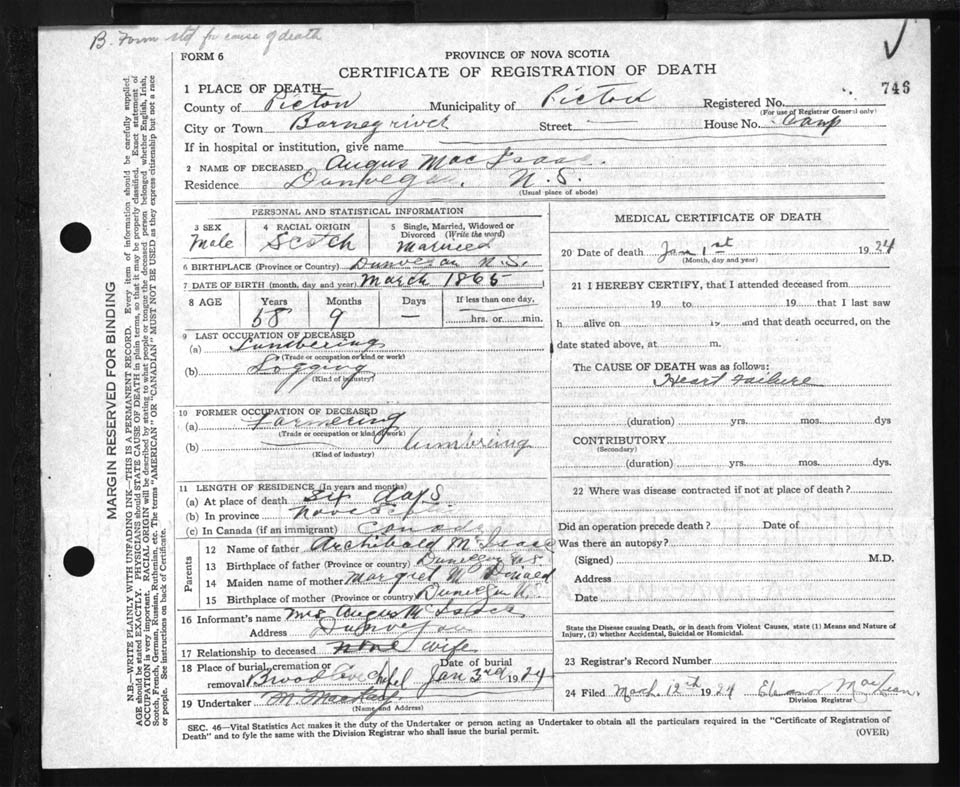 B. Form std for cause of death
FORM 6
PROVINCE OF NOVA SCOTIA
CERTIFICATE OF REGISTRATION OF DEATH
746
1 PLACE OF DEATH—
County of Pictou Municipality of Pictou Registered No.
(For use of Registrar General only)
City or Town Barneyriver Street House No. Camp
If in hospital or institution, give name
2 NAME OF DECEASED Angus Mac Isaac
Residence Dunvegan, N.S.
(Usual place of abode)
PERSONAL AND STATISTICAL INFORMATION
3 SEX 4 RACIAL ORIGIN 5 Single, Married, Widowed or
Divorced (Write the word)
Male Scotch Married
6 BIRTHPLACE (Province or Country) Dunvegan N.S.
7 DATE OF BIRTH (month, day and year) March 1865
8 AGE Years Months Days If less than one day,
58 9 — hrs. or min.
9 LAST OCCUPATION OF DECEASED
(a) Lumbering
(Trade or occupation or kind of work)
(b) Logging
(Kind of industry)
10 FORMER OCCUPATION OF DECEASED
(a) Farmering
(Trade or occupation or kind of work)
(b) lumbreing
(Kind of industry)
11 LENGTH OF RESIDENCE (In years and months)
(a) At place of death 34 days
(b) In province Nova
(c) In Canada (if an immigrant) Canada
Parents
12 Name of father Archibald McIsaac
13 Birthplace of father (Province or Country) Dunvegan N.S.
14 Maiden name of mother Margret McDonald
15 Birthplace of mother (Province or Country) Dunvegan N.
16 Informant's name Mrs Angus M Isaac
Address Dunvegan
17 Relationship to deceased wife
18 Place of burial, cremation or Date of burial
removal Broad Cove Chapel Jan 3rd 1924
19 Undertaker M. MacKay
(Name and Address)
MEDICAL CERTIFICATE OF DEATH
20 Date of death Jan 1st 1924
(Month, day and year)
21 I HEREBY CERTIFY, that I attended deceased from
19 to 19 that I last saw
h alive on 19 and that death occurred, on the
date stated above, at m.
The CAUSE OF DEATH was as follows:
Heart Failure
(duration) yrs. mos. dys.
CONTRIBUTORY
(Secondary)
(duration) yrs. mos. dys.
22 Where was disease contracted if not at place of death?
Did an operation precede death? Date of
Was there an autopsy?
(Signed) M.D.
Address
Date
State the Disease causing Death, or in death from Violent Causes, state (1) Means and Nature of
Injury, (2) whether Accidental, Suicidal or Homicidal.
23 Registrar's Record Number
24 Filed Mach. 12th 1924 Eleanor MacLean.
Division Registrar
SEC. 46—Vital Statistics Act makes it the duty of the Undertaker or person acting as Undertaker to obtain all the particulars required in the "Certificate of Registration of
Death" and to fyle the same with the Division Registrar who shall issue the burial permit.
(OVER)
MARGIN RESERVED FOR BINDING
N.B.—WRITE PLAINLY WITH UNFADING INK—THIS IS A PERMANENT RECORD. Every item of information should be carefully supplied.
AGE should be stated EXACTLY. PHYSICIANS should STATE CAUSE OF DEATH in plain terms, so that it may be properly classified. Exact statement of
OCCUPATION is very important. RACIAL ORIGIN will be described by stating to what people or tongue the deceased person belonged, whether English, Irish,
Scotch, French, German, Russian, Ruthenian, etc. The terms "AMERICAN" OR "CANADIAN" MUST NOT BE USED as they express citizenship but not a race
or people. See instructions on back of Certificate.